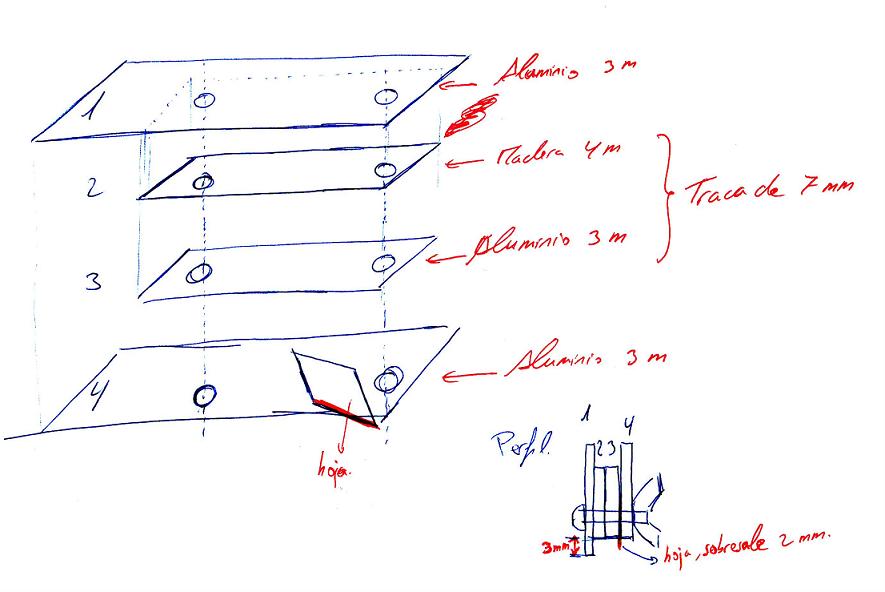 1
Aluminio 3 m
2
Madera 4 m
Traca de 7 mm
3
Aluminio 3 m
4
Aluminio 3 m
hoja.
Perfil.
1
2 3
4
3mm
hoja, sobresale 2 mm.